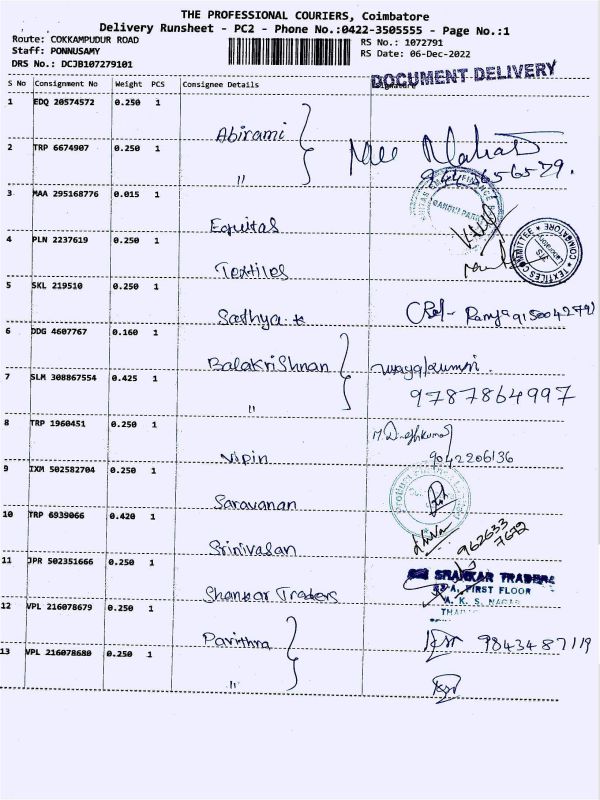 THE PROFESSIONAL COURIERS, Coimbatore
Delivery Runsheet - PC2 - Phone No.:0422-3505555 - Page No.:1
Route: COKKAMPUDUR ROAD
Staff: PONNUSAMY
DRS No.: DCJB107279101
RS No.: 1072791
RS Date: 06-Dec-2022
DOCUMENT DELIVERY
S No Consignment No Weight PCS Consignee Details Signature
1 EDQ 20574572 0.250 1 Abirami
2 TRP 6674907 0.250 1 "
3 MAA 295168776 0.015 1 Equitas
GANDHI PARK
4 PLN 2237619 0.250 1 Textiles
TEXTILES COMMITTEE * COIMBATORE *
5 SKL 219510 0.250 1 Sathya
6 DDG 4607767 0.160 1 Balakrishnan
7 SLM 308867554 0.425 1 " 9787864997
8 TRP 1960451 0.250 1 Vipin 9042206136
9 IXM 502582704 0.250 1 Saravanan
10 TRP 6939066 0.420 1 Srinivasan 962633 7672
11 JPR 502351666 0.250 1 Shankar Traders
SHANKAR TRADERS
FIRST FLOOR
A. K. S. NAGAR
12 VPL 216078679 0.250 1 Pavithra 9843487119
13 VPL 216078680 0.250 1 "